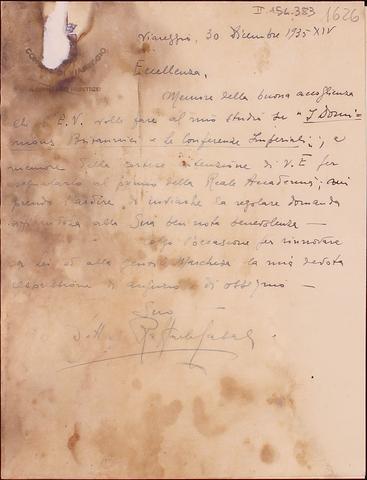 II 154.383 1626
Viareggio, 30 Dicembre 1935 XIV
Eccellenza,
Memore della buona accoglienza
che E.V. volle fare al mio studio su "I Domi=
nions Britannici e le Conferenze Imperiali", e
memore della cortese intenzione di V.E per
segnalarlo al premio della Reale Accademia, mi
prendo l'ardire di inviarLe la regolare domanda
alla Sua ben nota benevolenza —
l'occasione per rinnovare
a Lei ed alla gentile Marchesa la mia devota
espressione di augurio e di ossequio —
Suo
Dott.